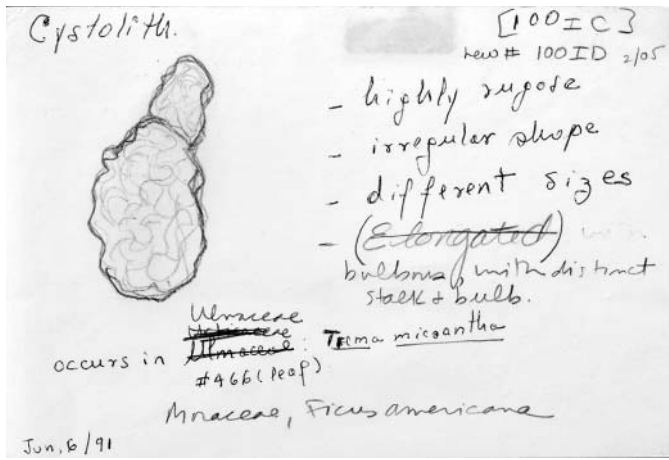 Cystolith.
[100IC]
new # 100ID 2/05
- highly rugose
- irregular shape
- different sizes
- (Elongated) with
bulbous, with distinct
stalk & bulb.
Ulmaceae
Urticaceae
occurs in Ulmaceae : Trema micrantha
#466 (leaf)
Moraceae, Ficus americana
Jun, 6/91